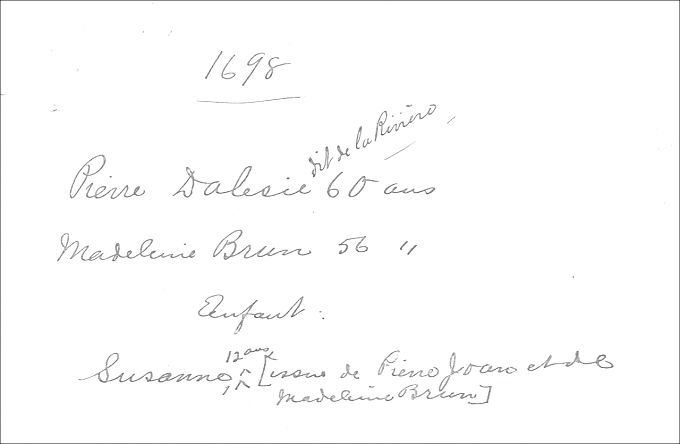 1698
dit de la Rivière
Pierre Dalesie 60 ans
Madeleine Brun 56 "
Enfant :
12 ans
Susanne, [issue de Pierre Joan et de
Madeleine Brun]